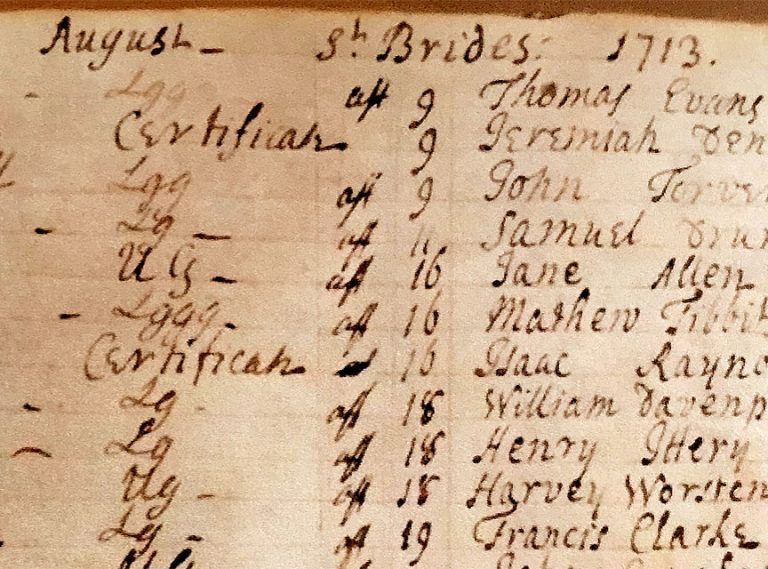 August St Brides: 1713.
Lgg aft 9 Thomas Evans
Certificate 9 Jeremiah Den
Lgg aft 9 John
Lg aft 11 Samuel
UG aft 16 Jane Allen
Lggg aft 16 Mathew Tibbit
Certificate 16 Isaac Rayno
Lg aft 18 William Davenp
Lg aft 18 Henry Ittery
Ug aft 18 Harvey Worsten
Lg aft 19 Francis Clarke